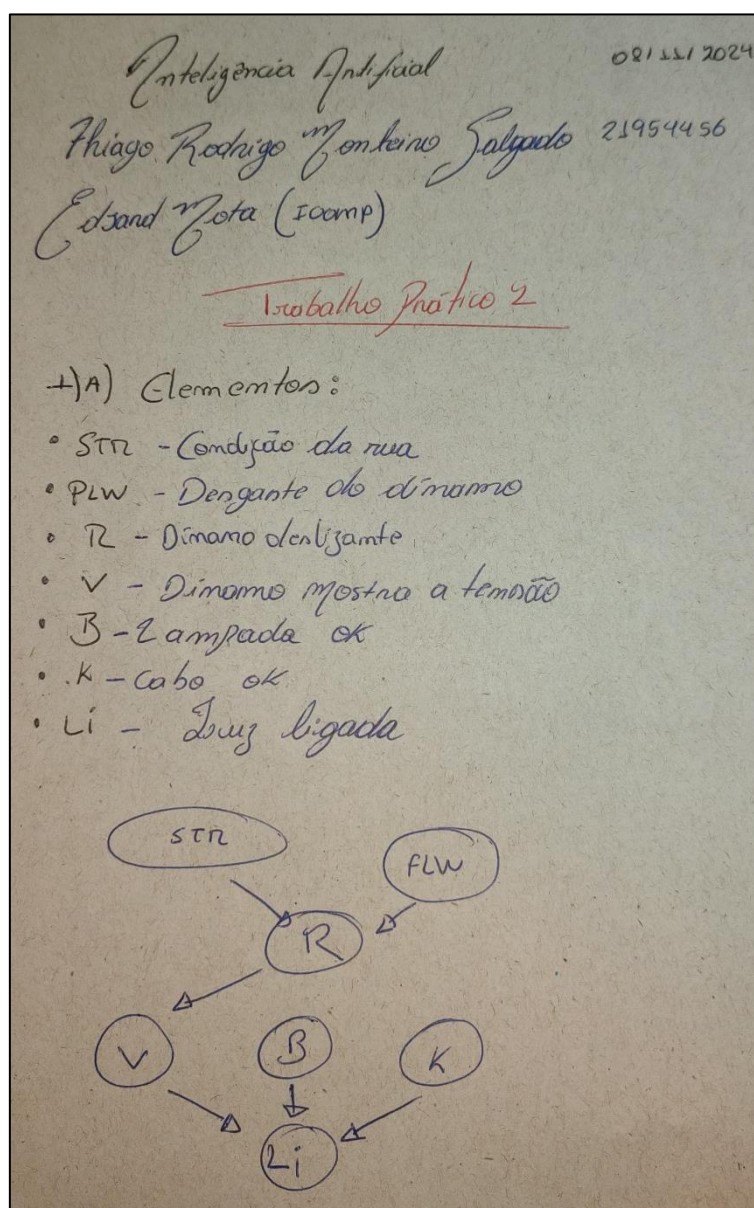 Inteligência Artificial 08/11/2024
Thiago Rodrigo Monteiro Salgado 21954456
Edjard Mota (ICOMP)
Trabalho Prático 2
1)A) Elementos:
• STR - Condição da rua
• FLW - Desgaste do dínamo
• R - Dínamo deslizante
• V - Dínamo mostra a tensão
• B - Lampada ok
• K - Cabo ok
• Li - Luz ligada
STR
FLW
R
V B K
Li